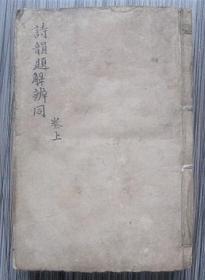 詩韻題解辨同
卷上